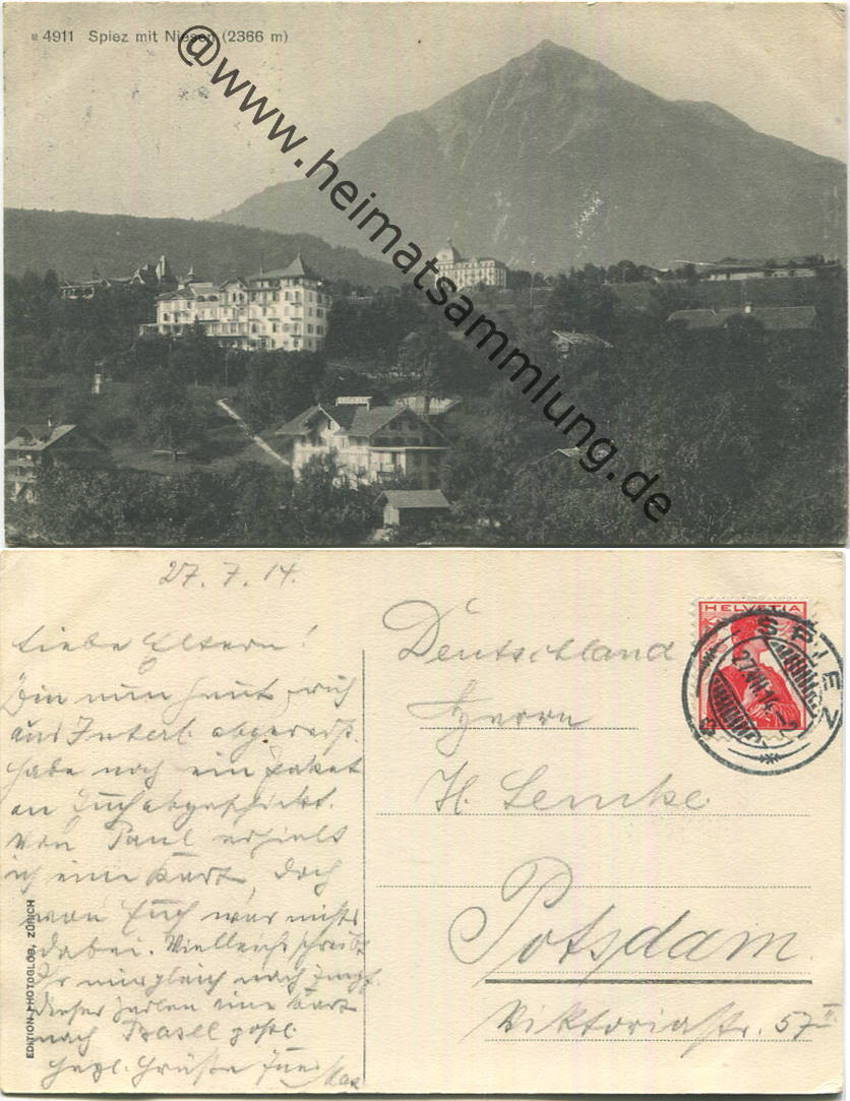 4911 Spiez mit Niesen (2366 m)
@www.heimatsammlung.de
27.7.14.
Liebe Eltern!
Bin nun heut früh
aus Interl. abgereist.
habe noch ein Paket
an Euch abgeschickt.
Von Paul erhielt
ich eine Karte, doch
von Euch war nichts
dabei. Vielleicht schreibt
Ihr mir gleich nach
dieser Zeilen eine Karte
nach Basel postl.
Herzl. Grüße Euer Max
EDITION PHOTOGLOB, ZÜRICH
Deutschland
Herrn
H. Lemcke
Potsdam.
Viktoriastr. 57 II
HELVETIA
SPIEZ